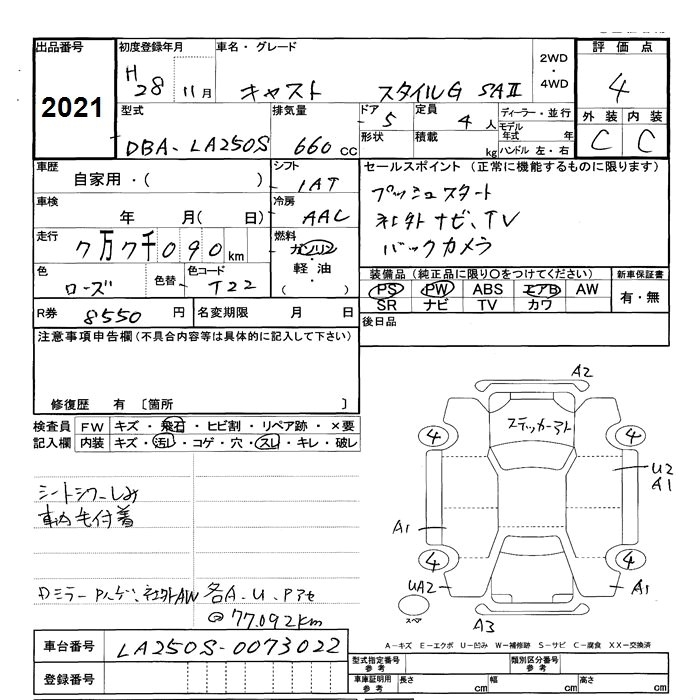 出品番号
2021
初度登録年月
H28 11月
車名・グレード
キャスト スタイルG SAⅡ
2WD・4WD
評価点
4
外装 内装
C C
型式
DBA-LA250S
排気量
660 CC
ドア
5
形状
定員
4人
積載
kg
ディーラー・並行
モデル年式 年
ハンドル 左・右
車歴
自家用・( )
シフト
IAT
車検
年 月( 日)
冷房
AAC
走行
7万7千090km
燃料
ガソリン
軽油
( )
色
ローズ
色替
色コード
T22
セールスポイント (正常に機能するものに限ります)
プッシュスタート
社外ナビ、TV
バックカメラ
装備品(純正品に限り○をつけてください)
PS PW ABS エアB AW
SR ナビ TV カワ
新車保証書
有・無
R券 8550 円
名変期限 月 日
後日品
注意事項申告欄(不具合内容等は具体的に記入して下さい)
修復歴 有 〔箇所 〕
検査員記入欄
FW キズ・飛石・ヒビ割・リペア跡・×要
内装 キズ・汚レ・コゲ・穴・スレ・キレ・破レ
シートシワ_しみ
車内毛付着
Dミラー Pハゲ、社外AW 各A.U.Pアセ
@77.092km
A2
ステッカーアト
4
4
U2
A1
A1
4
4
UA2
A1
スペア
A3
A-キズ E-エクボ U-凹み W-補修跡 S-サビ C-腐食 XX-交換済
車台番号
LA250S-0073022
登録番号
型式指定番号 参考
類別区分番号 参考
車庫証明用 参考
長さ cm
幅 cm
高さ cm